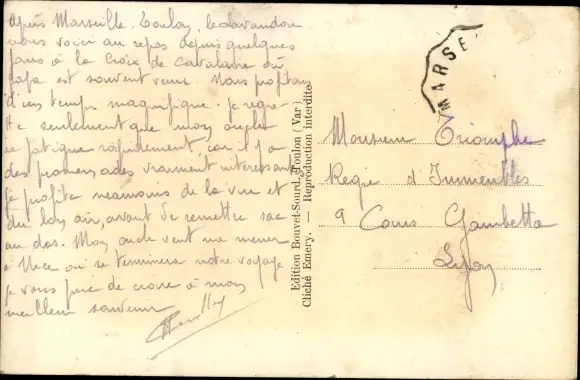 Après Marseille. Toulon, le Lavandou
nous voici au repos depuis quelques
jours à la Croix de Cavalaire où
papa est souvent venu. Nous profitons
d'un temps magnifique. je regret-
te seulement que mon oncle
se fatigue rapidement car il y a
des promenades vraiment intéressantes
je profite néanmoins de la vue et
du bon air, avant de remettre sac
au dos. Mon oncle veut me mener
à Nice où se terminera notre voyage
je vous prie de croire à mon
meilleur souvenir
Edition Bouvet-Sourd, Toulon (Var)
Cliché Emery. — Reproduction interdite
MARSE
Monsieur Triomphe
Régie d'Immeubles
9 Cours Gambetta
Lyon